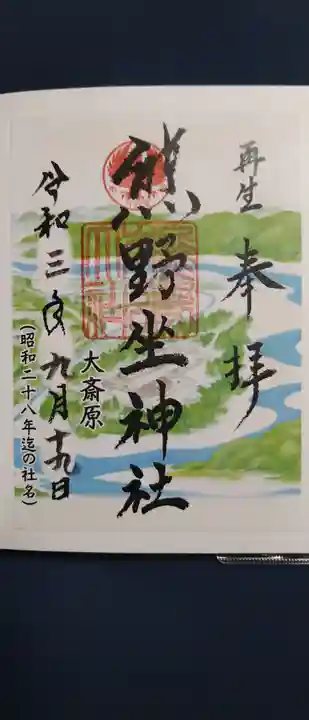 再生 奉拝
熊野坐神社
大斎原
令和三年九月十九日
(昭和二十八年迄の社名)